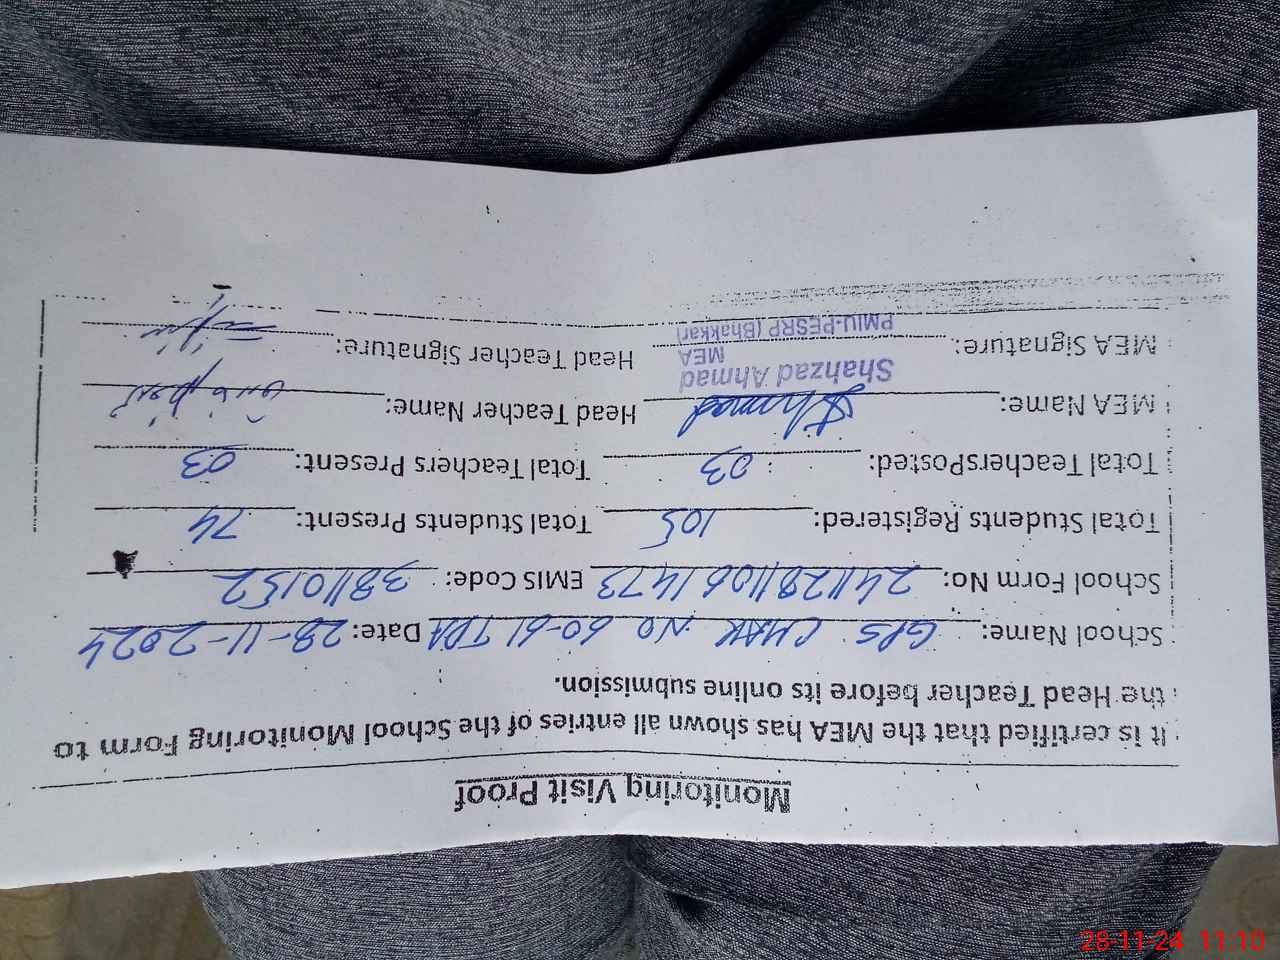 Monitoring Visit Proof
It is certified that the MEA has shown all entries of the School Monitoring Form to
the Head Teacher before its online submission.
School Name: GPS CHAK NO 60-61 TDA Date: 28-11-2024
School Form No: 24112811061473 EMIS Code: 38110152
Total Students Registered: 105 Total Students Present: 74
Total TeachersPosted: 03 Total Teachers Present: 03
MEA Name: Ahmad Head Teacher Name:
Shahzad Ahmad
MEA
MEA Signature: Head Teacher Signature:
PMIU-PESRP (Bhakkar)
28-11-24 11:10